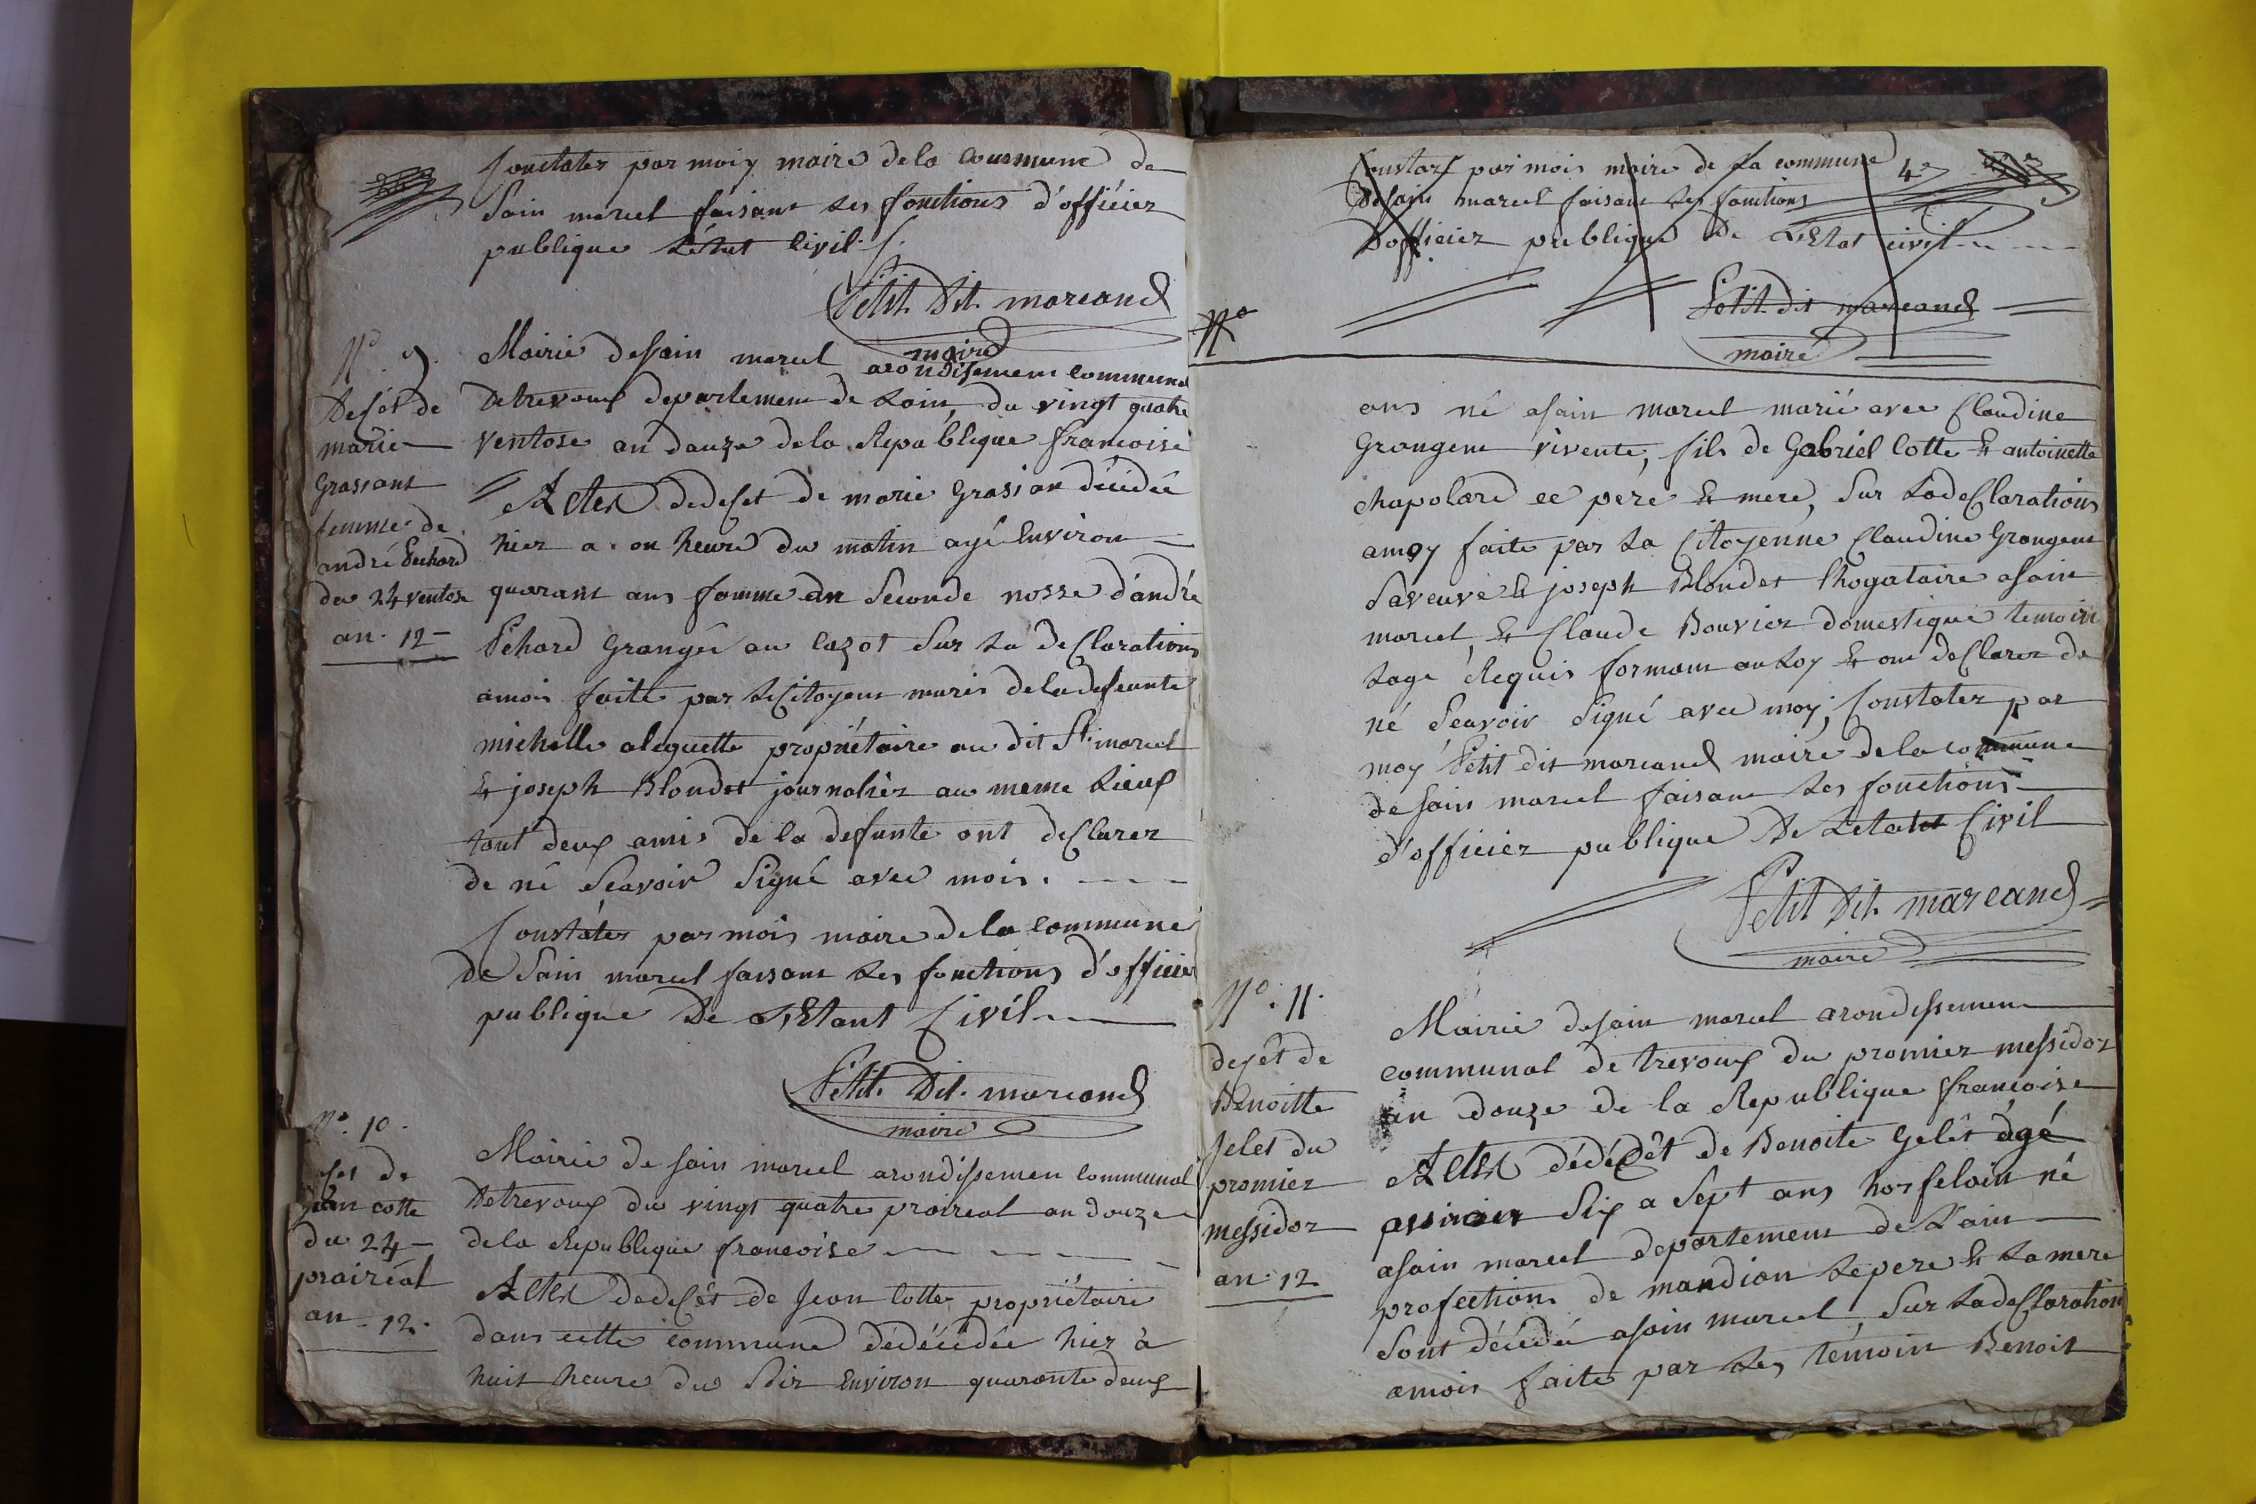 Constater par moiy maire dela Commune de
Sain marcel faisant les fonctions d'officier
publique L'état Civil
Petit Dit marcand
maire
N° 9.
Deset de
marie
Grassant
femme de
andré Pechard
du 24 ventose
an 12
Mairie desain marcel arondisement communal
Detrevoux departement de Loin du vingt quatre
ventose an douze dela Republique francoise
Actes dedeset de marie Grasian décédée
hier a on heure du matin agé Environ
quarant ans famme an Seconde nosse d'andré
Pehard Grangé au cazot Sur la declarations
amois faitte par le Citoyent maris deladefeunte
michelle aleguette propriétaire au dit St marcel
Et joseph Blondet journalier au meme Lieux
tout deux amis de la defunte ont declarer
de né Seavoir Signé avec mois.
Constater par mois maire dela commune
De Sain marcel faisant les fonctions d'officier
publique De L'Etant Civil
Petit Dit marcand
maire
N° 10.
set de
jean cotte
du 24
prairéal
an 12.
Mairie de sain marcel arondissemen Communal
Detrevoux du vingt quatre praireal an douze
dela Republique francoise
Actes Dedesét de Jean Cotte propriétaire
dans cette commune dedécédée hier à
huit heure du Soir Environ quarante deux
Constaté par mois maire de La commune
Desain marcel faisant Les fonctions
Dofficier publique De L'Etat civil
4e
Petit dit marcand
maire
N°
ans né asain marcel marié avec Claudine
Grangent vivente, fils de Gabriel Cotte Et antoinette
chapolard ce pere Et mere, Sur ladeclarations
amoy faite par La Citoyenne Claudine Grangent
Saveuve Et joseph Blondet Rogataire asain
marcel, Et Claude Bouvier domestique temoin
Lage Requis formant auloy Et ont declarer de
né Seavoir Signé avec moy, Constater par
moy Petit dit marcand maire dela commune
de sain marcel faisant les fonctions
d'officier publique De Letatet Civil
Petit Dit marcand
maire
N° 11.
desét de
Benoitte
Jelet du
promier
messidor
an 12
Mairie desain marcel arondissement
communal de trevoux du promier messidor
an douze de la Republique francoise
Actes dédésêt de Benoite Gelêt âgé
Six a Sept ans né
asain marcel departement de L'ain
profections de mandian Lepere Et La mere
Sont décédé asain marcel, Sur Ladeclaration
amois faite par Les témoin Benoit